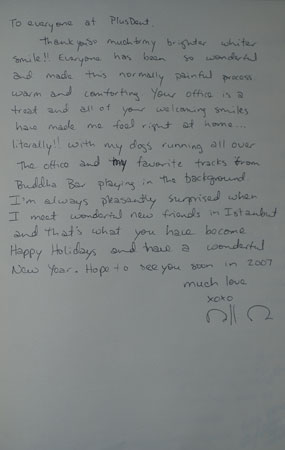 To everyone at PlusDent.
Thankyouso much for my brighter whiter
smile!! Everyone has been so wonderful
and made this normally painful process
warm and comforting. Your office is a
treat and all of your welcoming smiles
have made me feel right at home...
literally!! with my dogs running all over
the office and my favorite tracks from
Buddha Bar playing in the background.
I'm always pleasantly surprised when
I meet wonderful new friends in Istanbul
and that's what you have become
Happy Holidays and have a wonderful
New Year. Hope to see you soon in 2007
much love
xoxo